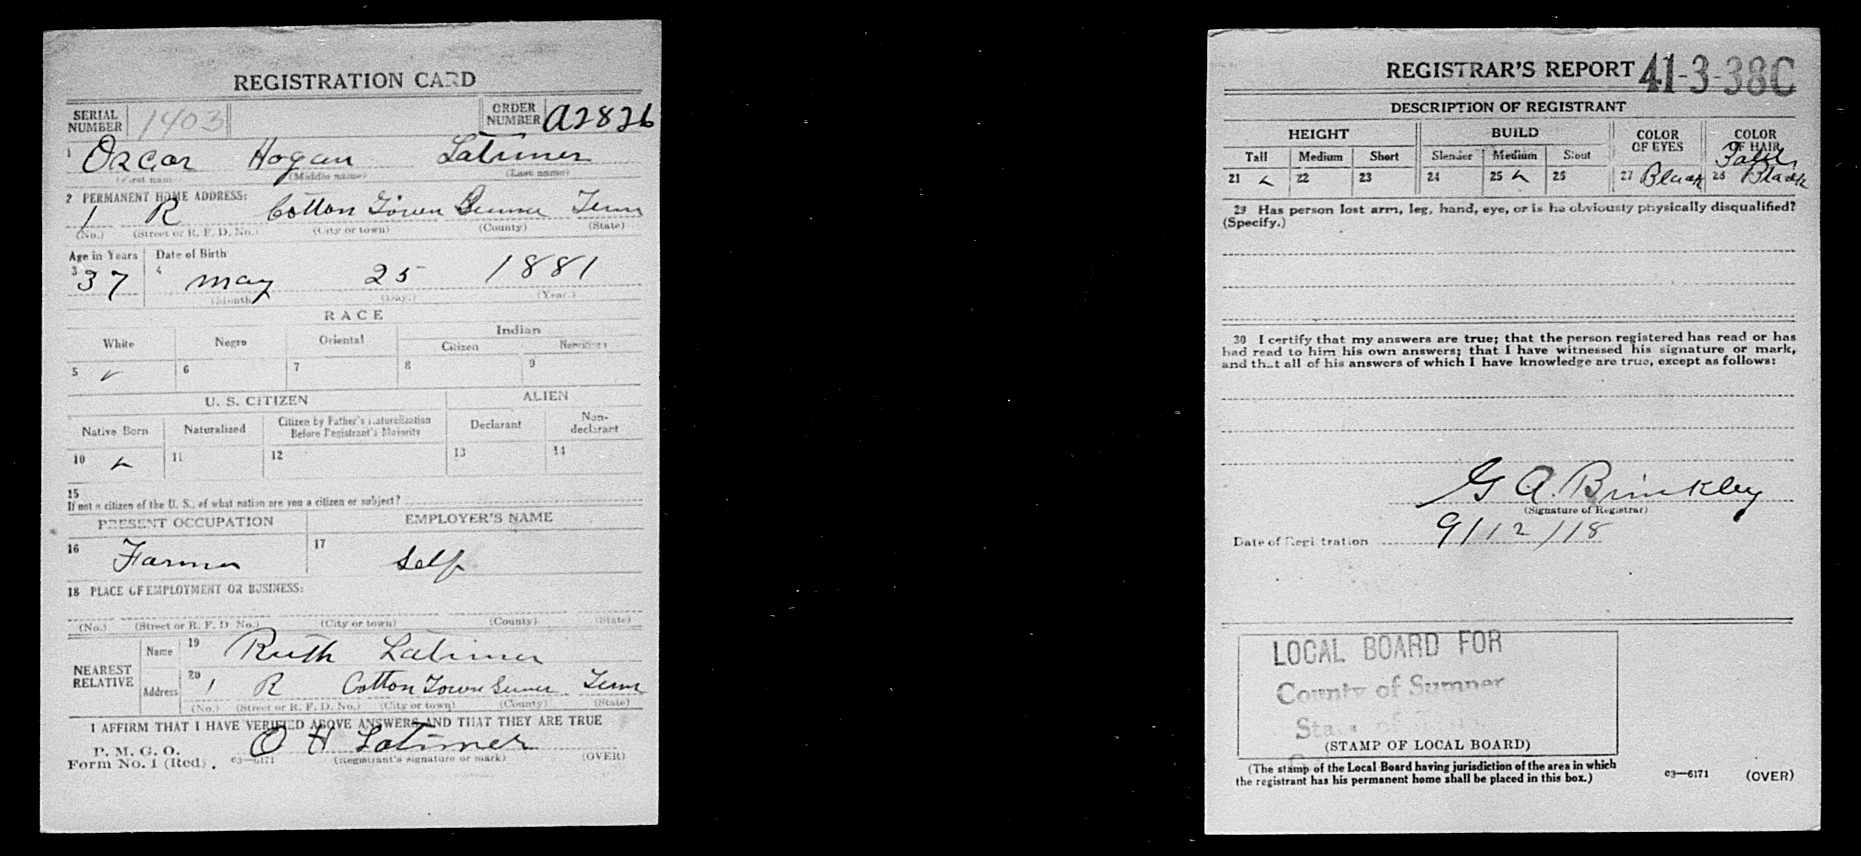 REGISTRATION CARD
SERIAL NUMBER 1403 ORDER NUMBER A2826
1 Oscar Hogan Latimer
(First name) (Middle name) (Last name)
2 PERMANENT HOME ADDRESS:
1 R Cotton Town Sumner Tenn
(No.) (Street or R. F. D. No.) (City or town) (County) (State)
Age in Years Date of Birth
3 37 4 May 25 1881
(Month) (Day.) (Year.)
RACE
White Negro Oriental Indian
Citizen Noncitizen
5 ✓ 6 7 8 9
U. S. CITIZEN ALIEN
Native Born Naturalized Citizen by Father's Naturalization Before Registrant's Majority Declarant Non-declarant
10 ✓ 11 12 13 14
15
If not a citizen of the U. S., of what nation are you a citizen or subject?
PRESENT OCCUPATION EMPLOYER'S NAME
16 Farmer 17 Self
18 PLACE OF EMPLOYMENT OR BUSINESS:
(No.) (Street or R. F. D. No.) (City or town) (County) (State)
NEAREST RELATIVE Name 19 Ruth Latimer
Address 20 1 R Cotton Town Sumner Tenn
(No.) (Street or R. F. D. No.) (City or town) (County) (State)
I AFFIRM THAT I HAVE VERIFIED ABOVE ANSWERS AND THAT THEY ARE TRUE
P. M. G. O.
Form No. 1 (Red) 03—6171 O H Latimer
(Registrant's signature or mark) (OVER)
REGISTRAR'S REPORT 41-3-38C
DESCRIPTION OF REGISTRANT
HEIGHT BUILD COLOR OF EYES COLOR OF HAIR
Tall Medium Short Slender Medium Stout
21 ✓ 22 23 24 25 ✓ 26 27 Black 28 Black
29 Has person lost arm, leg, hand, eye, or is he obviously physically disqualified?
(Specify.)
30 I certify that my answers are true; that the person registered has read or has
had read to him his own answers; that I have witnessed his signature or mark,
and that all of his answers of which I have knowledge are true, except as follows:
G A. Brinkley
(Signature of Registrar)
Date of Registration 9/12/18
LOCAL BOARD FOR
County of Sumner
State of
(STAMP OF LOCAL BOARD)
(The stamp of the Local Board having jurisdiction of the area in which
the registrant has his permanent home shall be placed in this box.)
03—6171 (OVER)